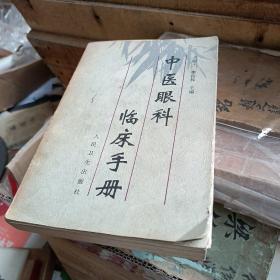 中医眼科
临床手册
人民卫生出版社
主编